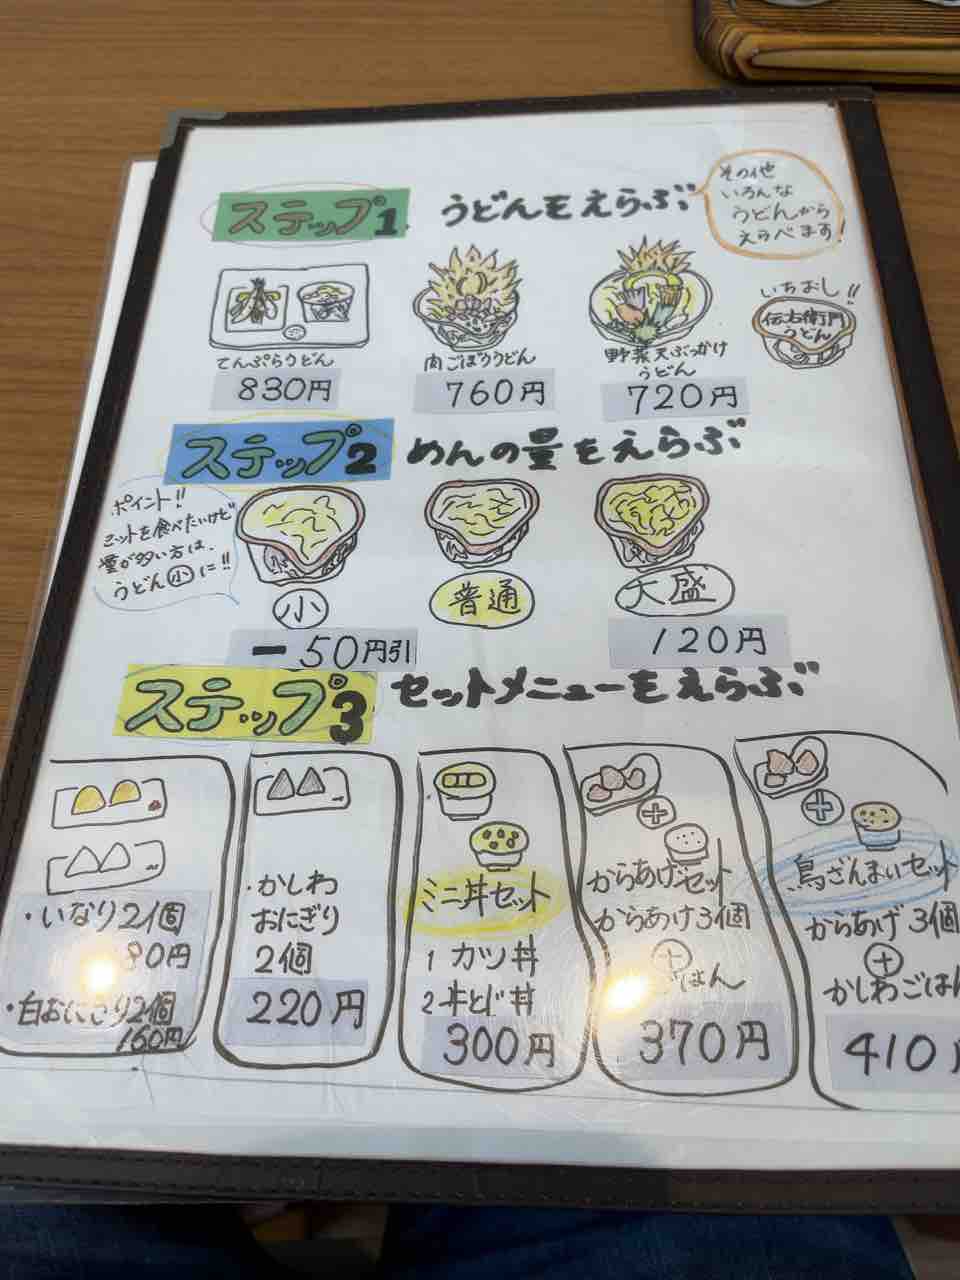 ステップ1 うどんをえらぶ
その他
いろんな
うどんから
えらべます!
てんぷらうどん
830円
肉ごぼううどん
760円
野菜天ぶっかけ
うどん
720円
いちおし!!
伝右衛門
うどん
ステップ2 めんの量をえらぶ
ポイント!!
セットを食べたいけど
量が多い方は、
うどん小に!!
小
-50円引
普通
大盛
120円
ステップ3 セットメニューをえらぶ
・いなり2個
80円
・白おにぎり2個
160円
・かしわ
おにぎり
2個
220円
ミニ丼セット
1 カツ丼
2 牛とじ丼
300円
からあげセット
からあげ3個
+
ごはん
370円
鳥ざんまいセット
からあげ3個
+
かしわごはん
410円